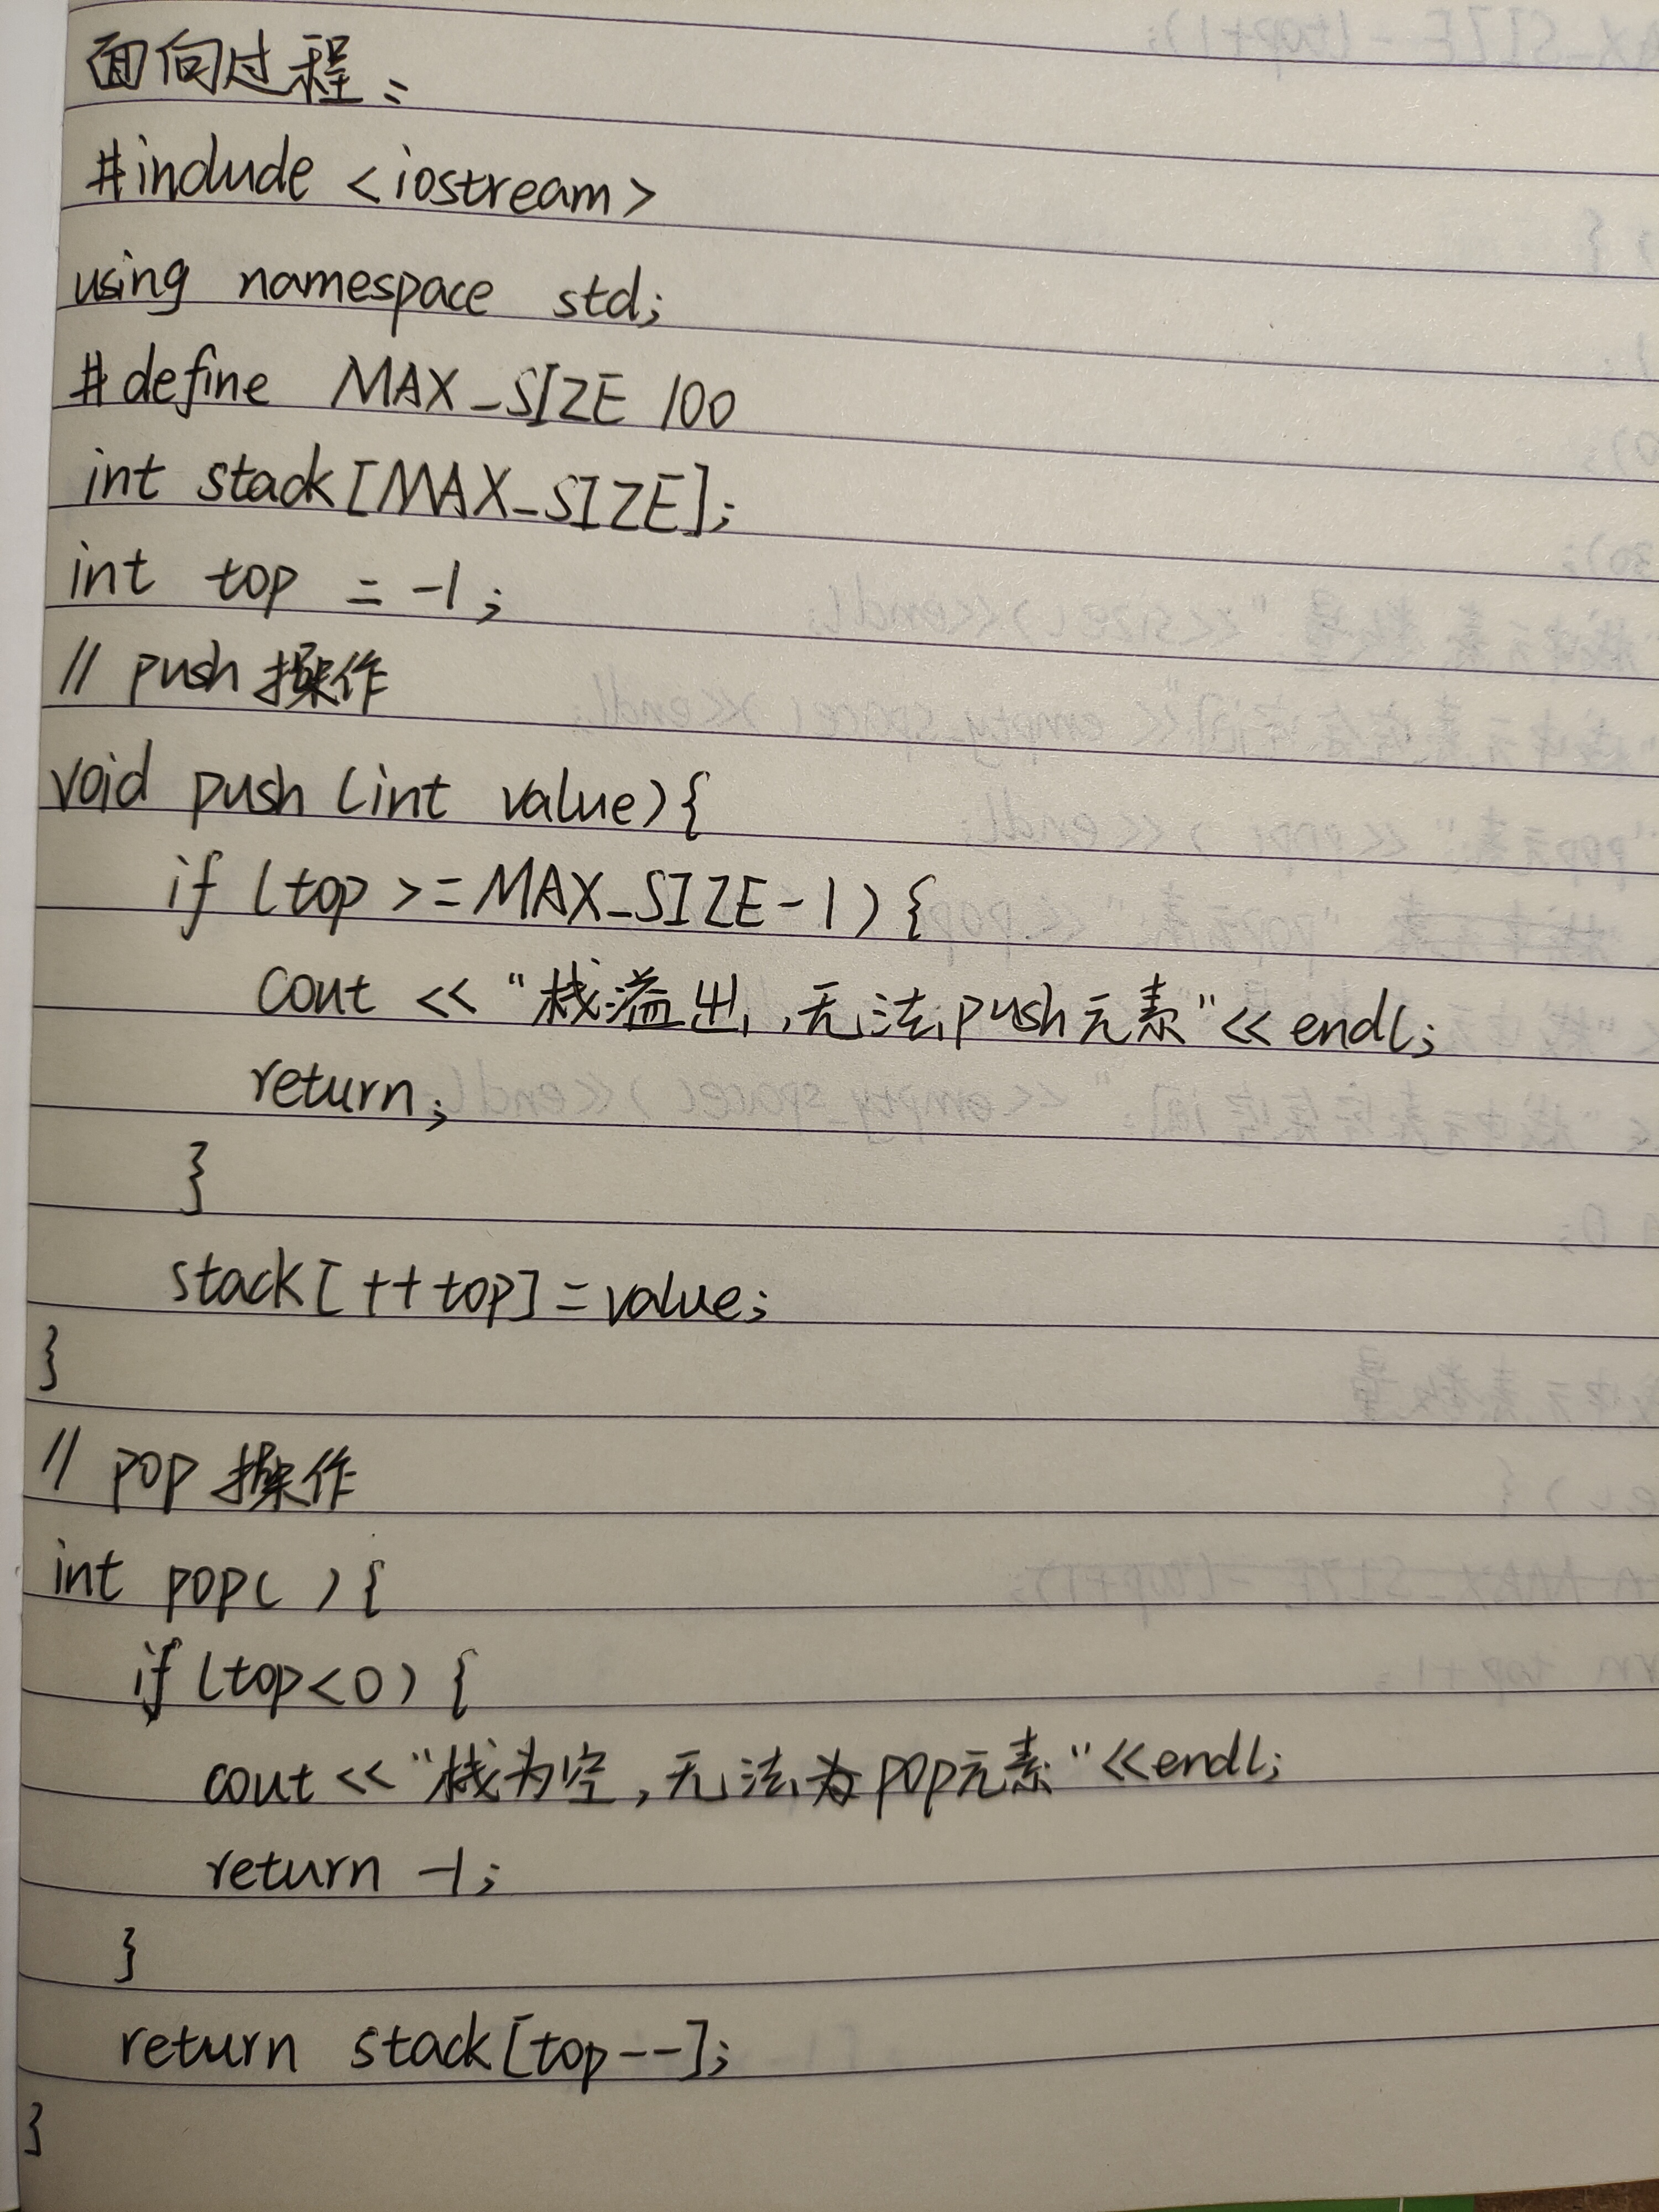 面向过程：
#include <iostream>
using namespace std;
#define MAX_SIZE 100
int stack[MAX_SIZE];
int top = -1;
// push 操作
void push (int value){
if (top >= MAX_SIZE-1) {
cout << "栈溢出,无法push元素" << endl;
return;
}
stack[++top] = value;
}
// pop 操作
int pop( ) {
if (top<0) {
cout << "栈为空,无法为pop元素" << endl;
return -1;
}
return stack[top--];
}